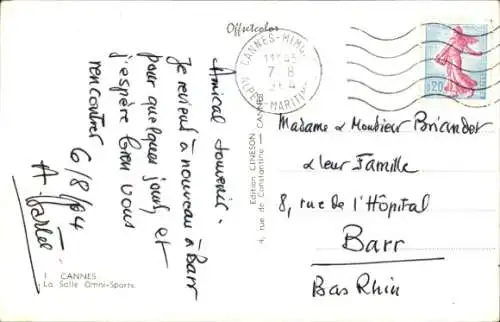 Offsetcolor
Amical souvenir.
Je reviens à nouveau à Barr
pour quelques jours, et
j'espère bien vous
rencontrer
6/8/64
1 CANNES
La Salle Omni-Sports
Edition CINESON
4, rue de Constantine — CANNES
CANNES-MIM
7 8
ALPES-MARITIM
0,20
Madame & Monsieur Briandet
& leur Famille
8, rue de l'Hôpital
Barr
Bas Rhin